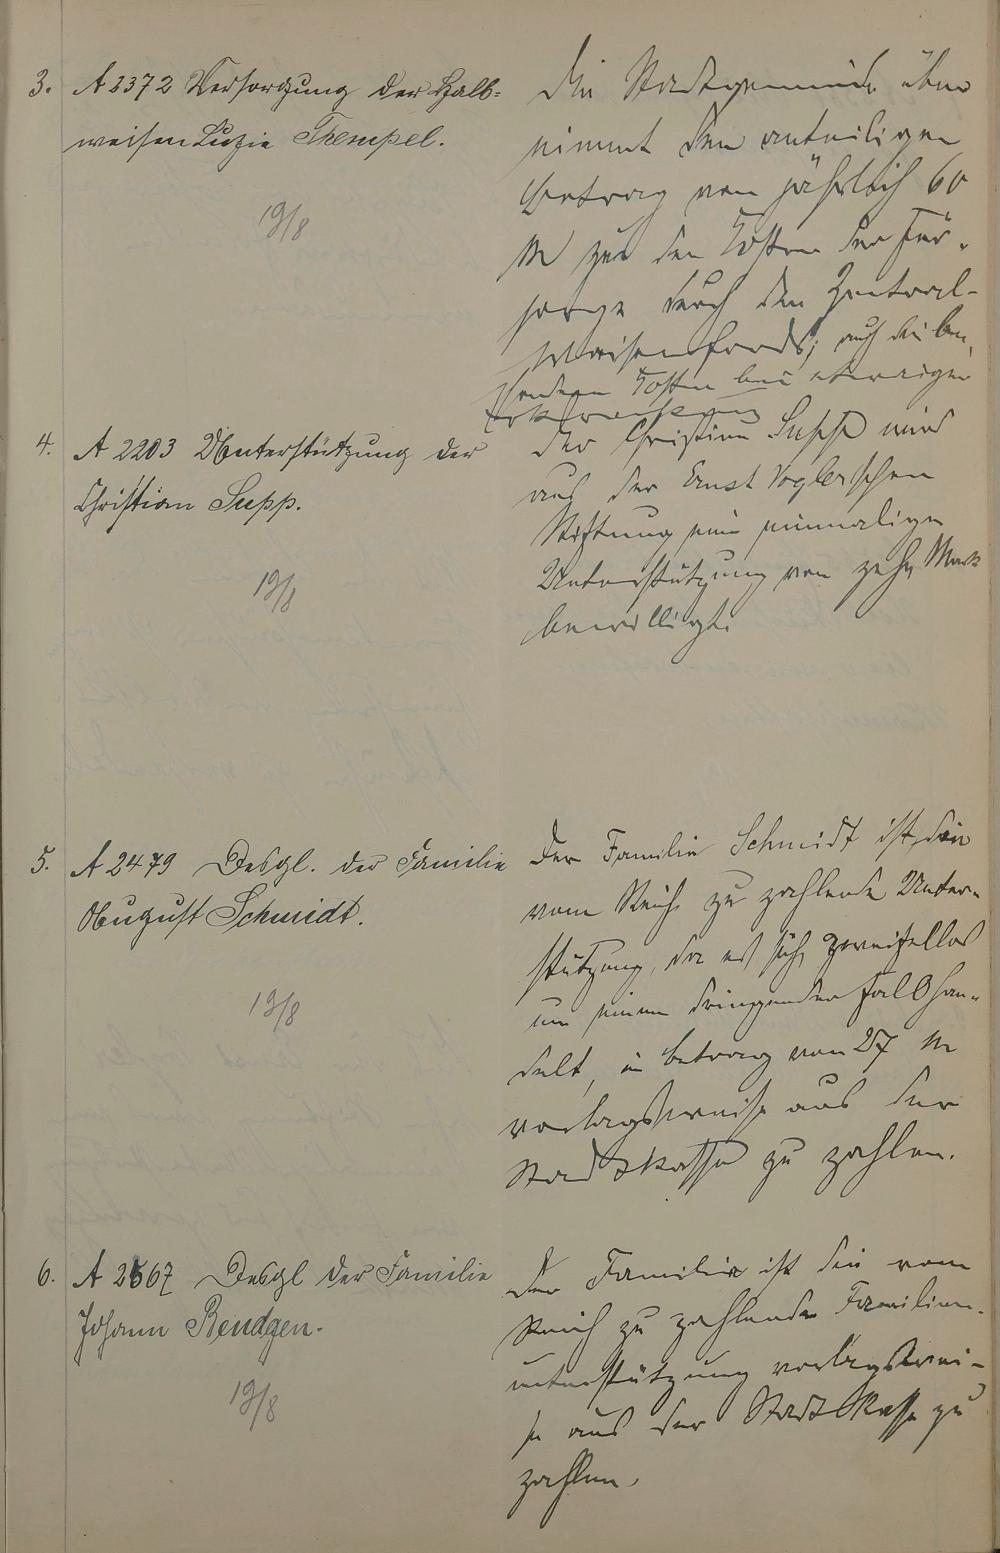 3. A 2372 Versorgung der Halb-
weisen Luzie Thempel.
19/8
Die Stadtgemeinde über
nimmt den anteiligen
Betrag von jährlich 60
M zu den Kosten der Für-
sorge durch den Zentral-
waisenfonds; auch die be-
sonderen Kosten bei etwaigen
Erkrankungen
4. A 2203 Unterstützung der
Christian Supp.
19/8
Der Christian Supp wird
aus der Ernst Vogler'schen
Stiftung eine einmalige
Unterstützung von zehn Mark
bewilligt.
5. A 2479 Desgl. der Familie
August Schmidt.
19/8
Der Familie Schmidt ist die
vom Reich zu zahlende Unter-
stützung, da es sich zweifellos
um einen dringenden Fall han-
delt, im Betrag von 27 M
vorlagsweise aus der
Stadtkasse zu zahlen.
6. A 2567 Desgl der Familie
Johann Bendgen.
19/8
Der Familie ist die vom
Reich zu zahlende Familien-
unterstützung vorlagswei-
se aus der Stadtkasse zu
zahlen.